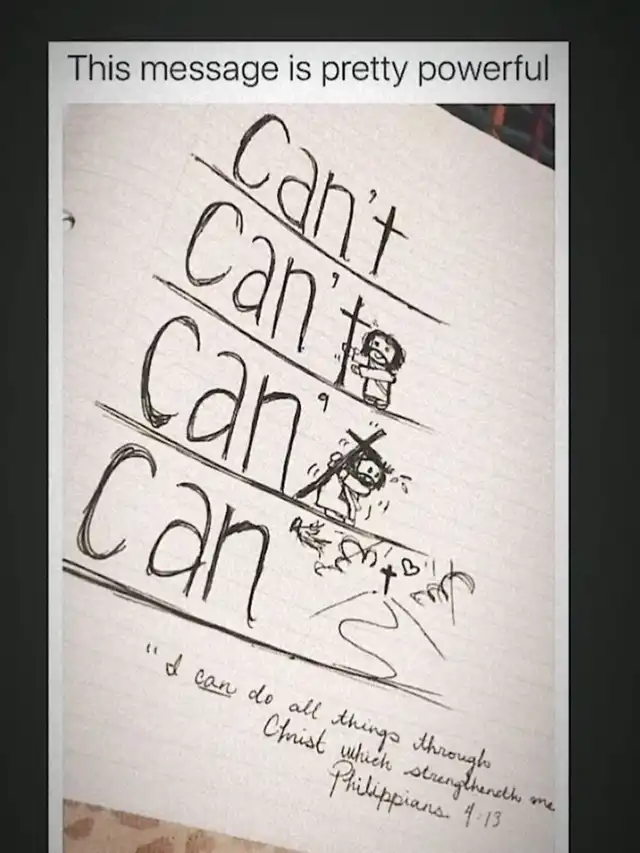 This message is pretty powerful
Can't
Can't
Can'
Can
"I can do all things through
Christ which strengtheneth me
Philippians 4:13